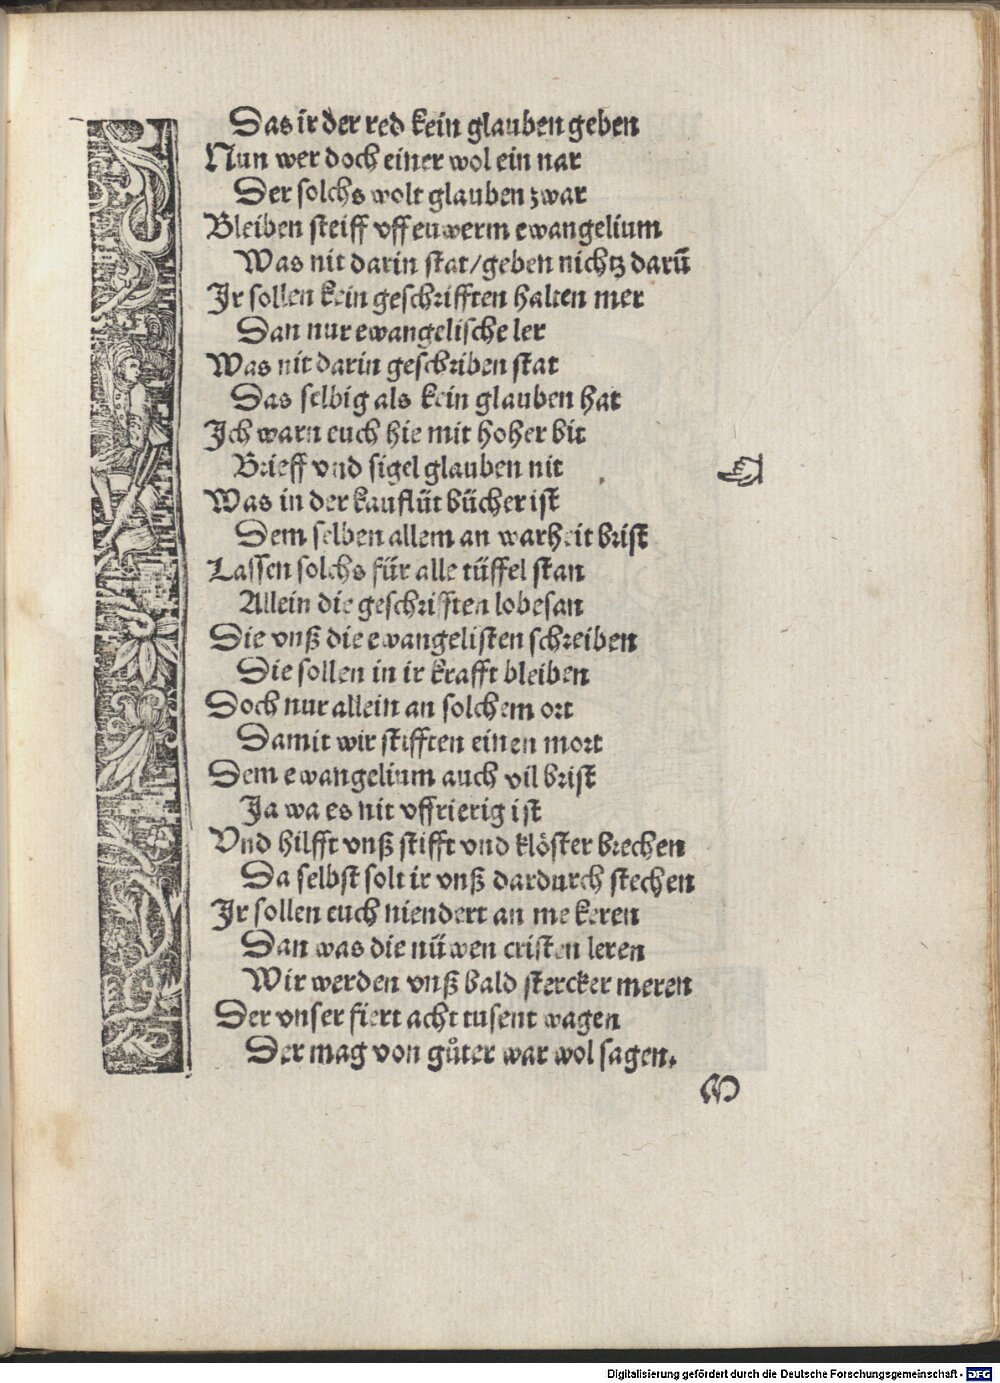 Das ir der red kein glauben geben
Nun wer doch einer wol ein nar
Der solchs wolt glauben zwar
Bleiben steiff vff euwerm ewangelium
Was nit darin stat/geben nichtz darū
Jr sollen kein geschrifften halten mer
Dan nur ewangelische ler
Was nit darin geschriben stat
Das selbig als kein glauben hat
Jch warn euch hie mit hoher bit
Brieff vnd sigel glauben nit
Was in der kauflüt bücher ist
Dem selben allem an warheit brist
Lassen solchs für alle tüffel stan
Allein die geschrifften lobesan
Die vnß die ewangelisten schreiben
Die sollen in ir krafft bleiben
Doch nur allein an solchem ort
Damit wir stifften einen mort
Dem ewangelium auch vil brist
Ja wa es nit vffrierig ist
Vnd hilfft vnß stifft vnd klöster brechen
Da selbst solt ir vnß dardurch stechen
Jr sollen euch niendert an me keren
Dan was die nüwen cristen leren
Wir werden vnß bald stercker meren
Der vnser fiert acht tusent wagen
Der mag von gůter war wol sagen.
M
Digitalisierung gefördert durch die Deutsche Forschungsgemeinschaft - DFG